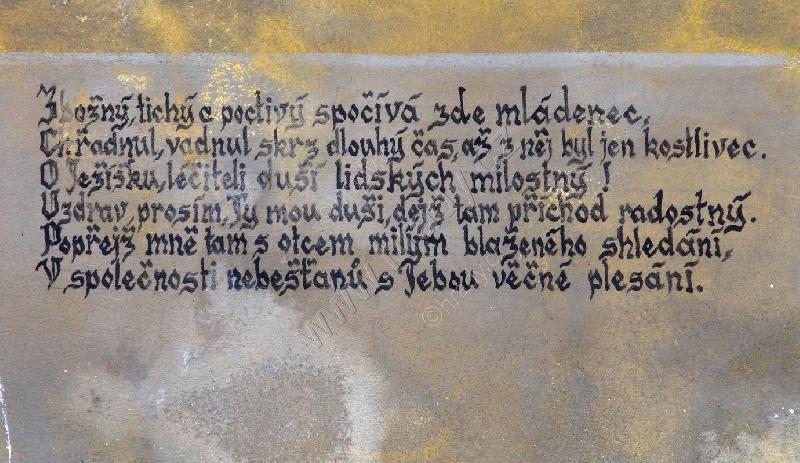 Zbožný, tichý a poctivý spočívá zde mládenec,
Chřadnul, vadnul skrz dlouhý čas, až z něj byl jen kostlivec.
O Ježíšku, léčiteli duší lidských milostný!
Uzdrav, prosím, Ty mou duši, dejž tam příchod radostný.
Popřejž mně tam s otcem milým blaženého shledání,
V společnosti nebešťanů s Tebou věčné plesání.